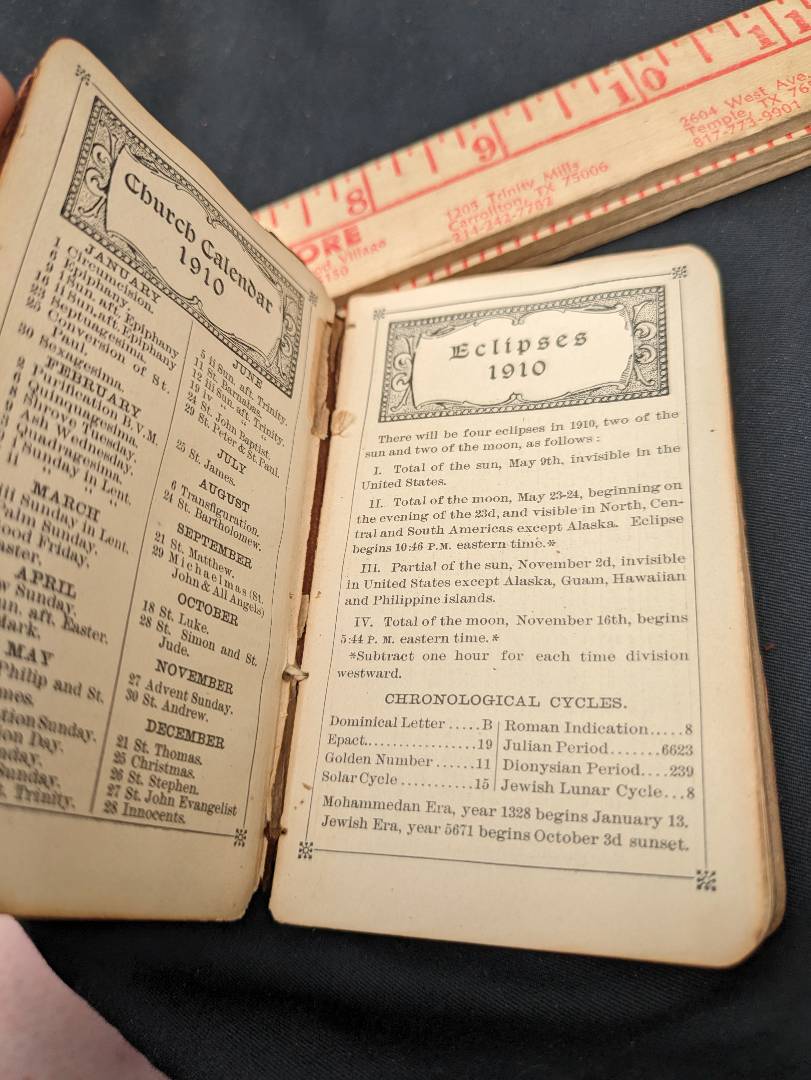 Church Calendar
1910
JANUARY
1 Circumcision.
6 Epiphany.
9 i Sun. aft. Epiphany
16 ii Sun. aft. Epiphany
23 Septuagesima.
25 Conversion of St.
Paul.
30 Sexagesima.
FEBRUARY
2 Purification B. V. M.
6 Quinquagesima.
8 Shrove Tuesday.
9 Ash Wednesday.
Quadragesima.
ii Sunday in Lent.
iii " "
MARCH
iii Sunday in Lent.
Palm Sunday.
ood Friday.
aster.
APRIL
w Sunday.
un. aft. Easter.
Mark.
MAY
Philip and St.
mes.
tion Sunday.
ion Day.
nday.
Sunday.
t. Trinity.
JUNE
5 ii Sun. aft. Trinity.
11 St. Barnabas.
12 iii Sun. aft. Trinity.
19 iv " " "
24 St. John Baptist.
29 St. Peter & St. Paul.
JULY
25 St. James.
AUGUST
6 Transfiguration.
24 St. Bartholomew.
SEPTEMBER
21 St. Matthew.
29 Michaelmas (St.
John & All Angels)
OCTOBER
18 St. Luke.
28 St. Simon and St.
Jude.
NOVEMBER
27 Advent Sunday.
30 St. Andrew.
DECEMBER
21 St. Thomas.
25 Christmas.
26 St. Stephen.
27 St. John Evangelist
28 Innocents.
Eclipses
1910
There will be four eclipses in 1910, two of the
sun and two of the moon, as follows:
I. Total of the sun, May 9th, invisible in the
United States.
II. Total of the moon, May 23-24, beginning on
the evening of the 23d, and visible in North, Cen-
tral and South Americas except Alaska. Eclipse
begins 10:46 P.M. eastern time.*
III. Partial of the sun, November 2d, invisible
in United States except Alaska, Guam, Hawaiian
and Philippine islands.
IV. Total of the moon, November 16th, begins
5:44 P. M. eastern time.*
*Subtract one hour for each time division
westward.
CHRONOLOGICAL CYCLES.
Dominical Letter .....B
Epact..................19
Golden Number ......11
Solar Cycle ...........15
Roman Indication.....8
Julian Period.......6623
Dionysian Period....239
Jewish Lunar Cycle...8
Mohammedan Era, year 1328 begins January 13.
Jewish Era, year 5671 begins October 3d sunset.
8 9 10 11
ORE
Village
1150
1205 Trinity Mills
Carrollton, TX 75006
214-242-7782
2604 West Ave.
Temple, TX 76
817-773-9901